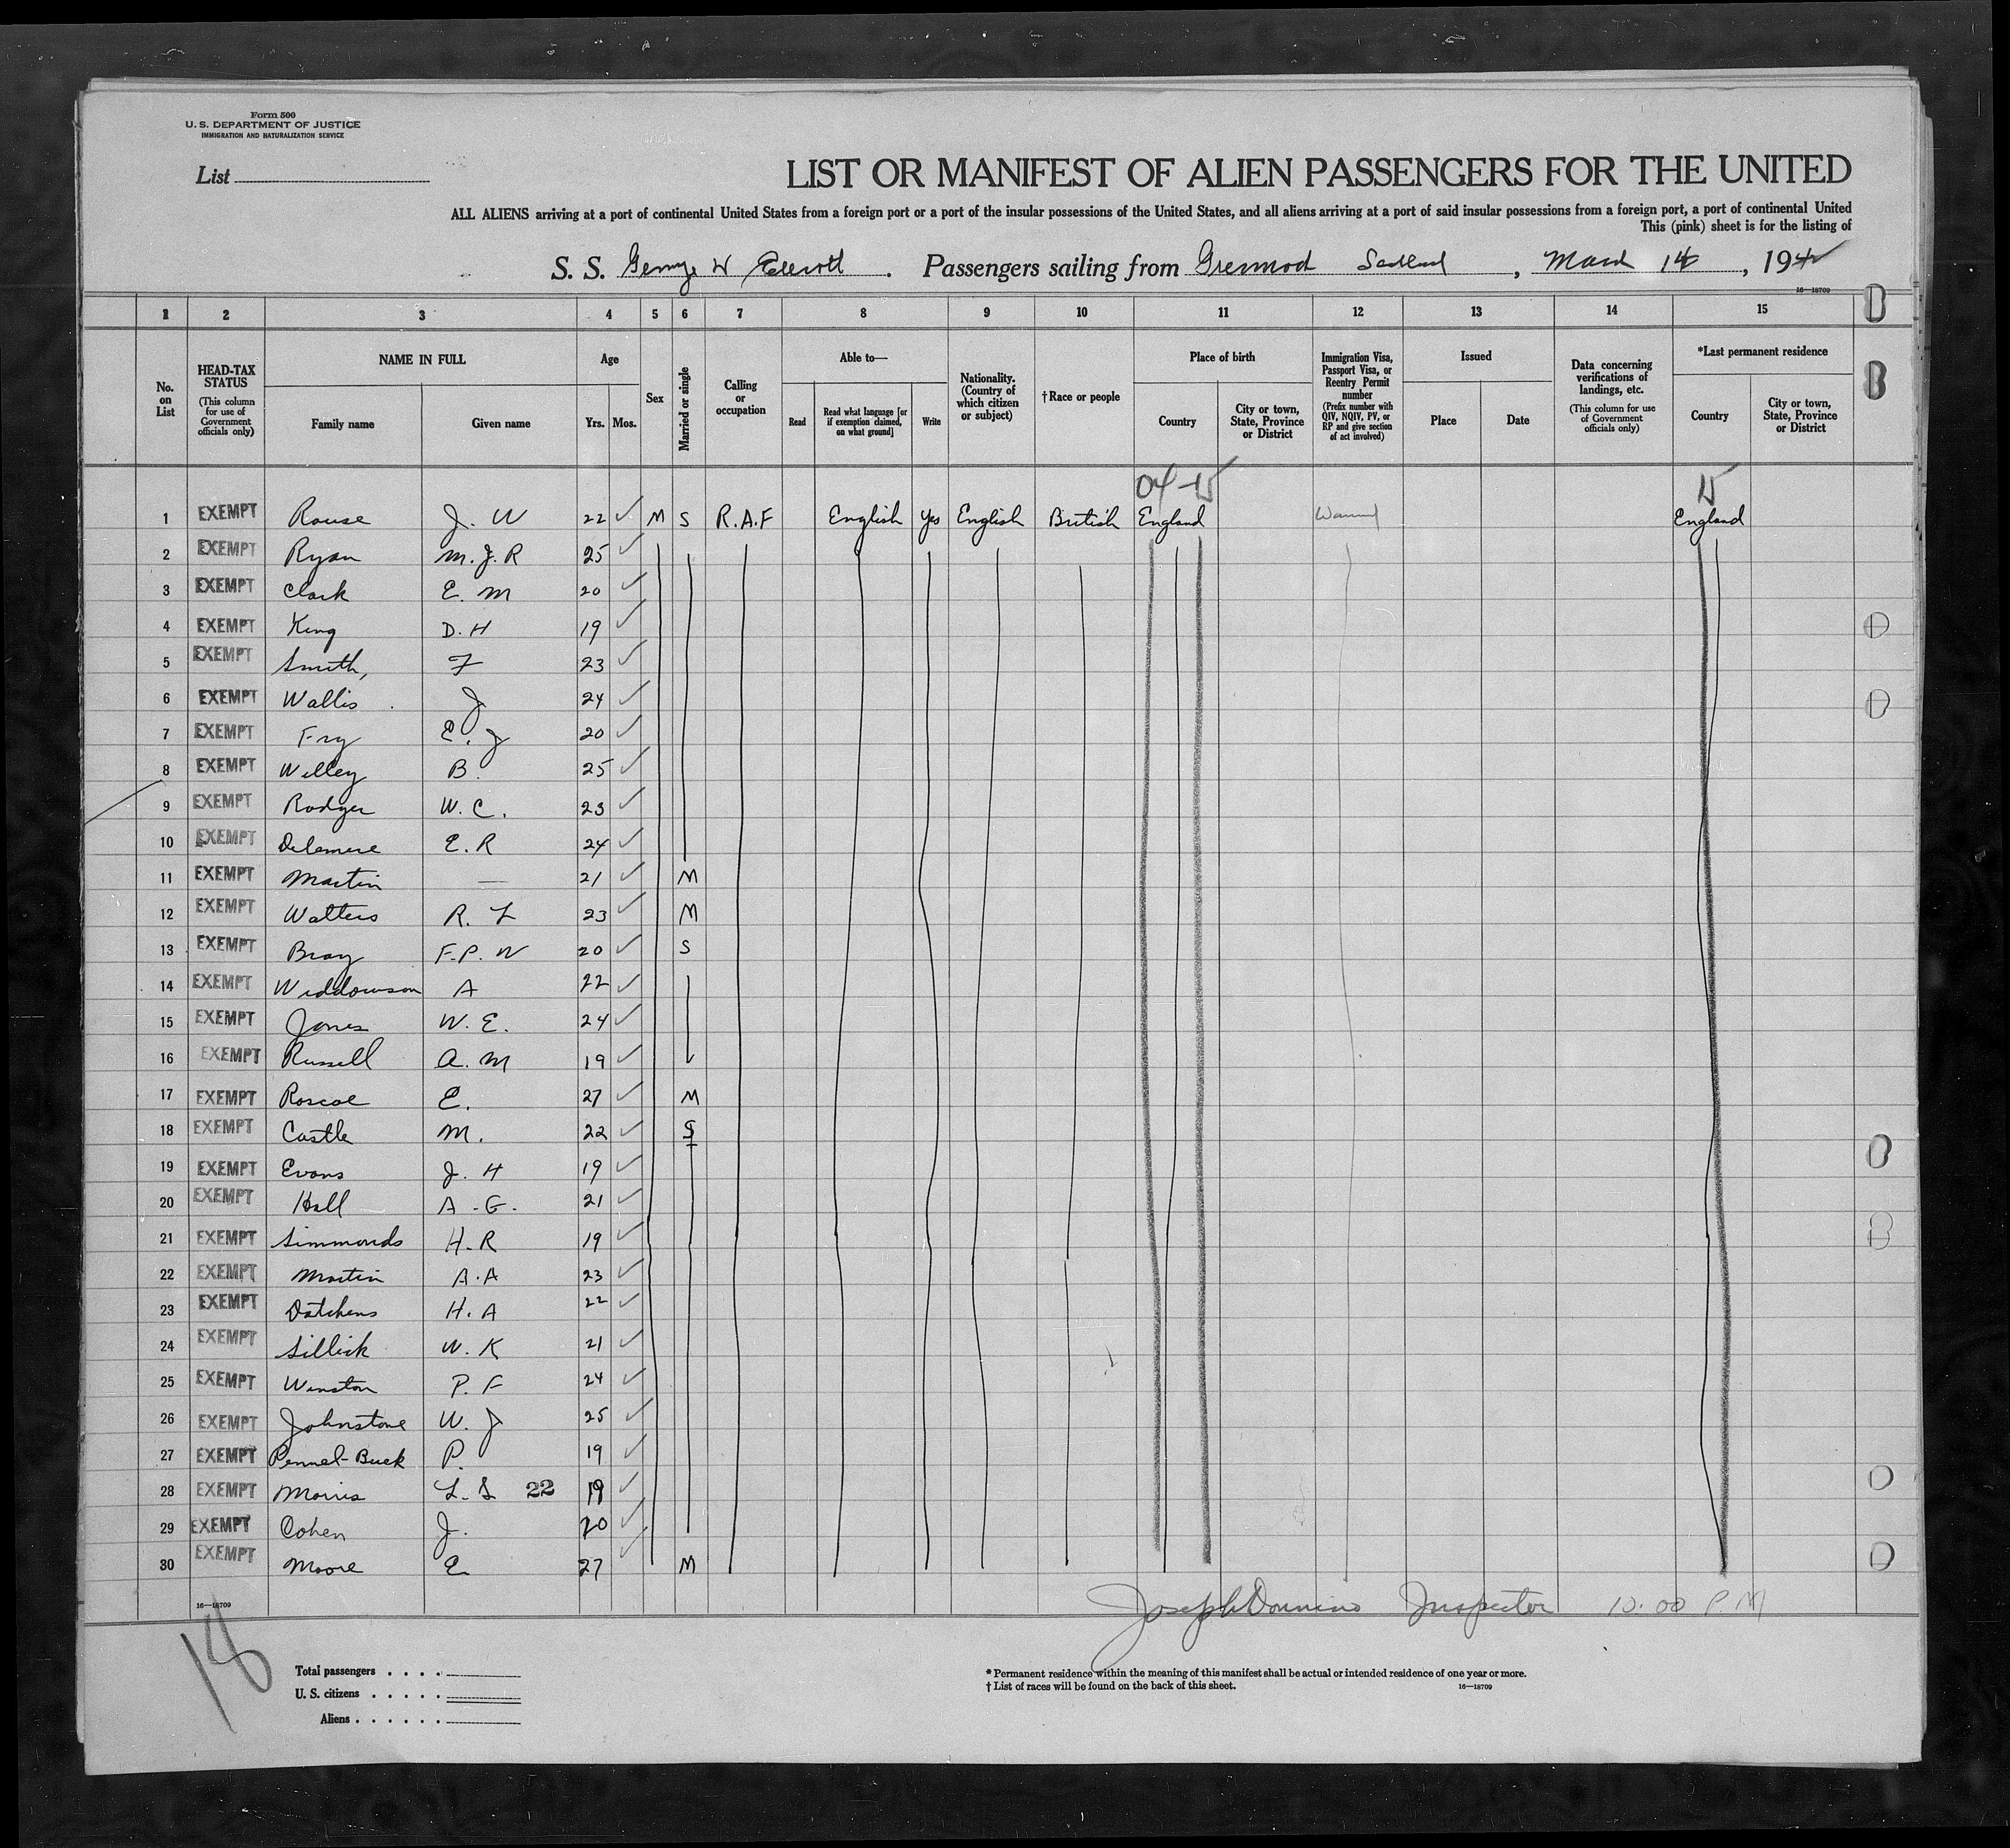 Form 500
U. S. DEPARTMENT OF JUSTICE
IMMIGRATION AND NATURALIZATION SERVICE
List
LIST OR MANIFEST OF ALIEN PASSENGERS FOR THE UNITED
ALL ALIENS arriving at a port of continental United States from a foreign port or a port of the insular possessions of the United States, and all aliens arriving at a port of said insular possessions from a foreign port, a port of continental United
This (pink) sheet is for the listing of
S. S. George W Passengers sailing from , March 14, 194
16—18709
1 2 3 4 5 6 7 8 9 10 11 12 13 14 15
No. on List
HEAD-TAX STATUS (This column for use of Government officials only)
NAME IN FULL
Family name
Given name
Age
Yrs. Mos.
Sex
Married or single
Calling or occupation
Able to—
Read
Read what language [or if exemption claimed, on what ground]
Write
Nationality. (Country of which citizen or subject)
†Race or people
Place of birth
Country
City or town, State, Province or District
Immigration Visa, Passport Visa, or Reentry Permit number (Prefix number with QIV, NQIV, PV, or RP and give section of act involved)
Issued
Place
Date
Data concerning verifications of landings, etc. (This column for use of Government officials only)
*Last permanent residence
Country
City or town, State, Province or District
04-15 15
1 EXEMPT Rouse J. W 22 M S R.A.F English Yes English British England Waived England
2 EXEMPT Ryan M. J. R 25
3 EXEMPT Clark E. M 20
4 EXEMPT King D. H 19
5 EXEMPT Smith, F 23
6 EXEMPT Wallis J 24
7 EXEMPT Fry E. J 20
8 EXEMPT Willey B. 25
9 EXEMPT Rodger W. C. 23
10 EXEMPT Delamere E. R 24
11 EXEMPT Martin — 21 M
12 EXEMPT Walters R. L 23 M
13 EXEMPT Bray F. P. W 20 S
14 EXEMPT Widdowson A 22
15 EXEMPT Jones W. E. 24
16 EXEMPT Russell A. M 19
17 EXEMPT Roscoe E. 27 M
18 EXEMPT Castle M. 22 S
19 EXEMPT Evans J. H 19
20 EXEMPT Hall A. G. 21
21 EXEMPT Simmonds H. R 19
22 EXEMPT Martin A. A 23
23 EXEMPT Datchens H. A 22
24 EXEMPT Sillick W. K 21
25 EXEMPT Winston P. F 24
26 EXEMPT Johnstone W. J 25
27 EXEMPT Pennel-Buck P. 19
28 EXEMPT Morris L. S 22 19
29 EXEMPT Cohen J. 20
30 EXEMPT Moore E 27 M
16—18709
Joseph Donnino Inspector 10:00 P.M
18
Total passengers
U. S. citizens
Aliens
* Permanent residence within the meaning of this manifest shall be actual or intended residence of one year or more.
† List of races will be found on the back of this sheet.
16—18709